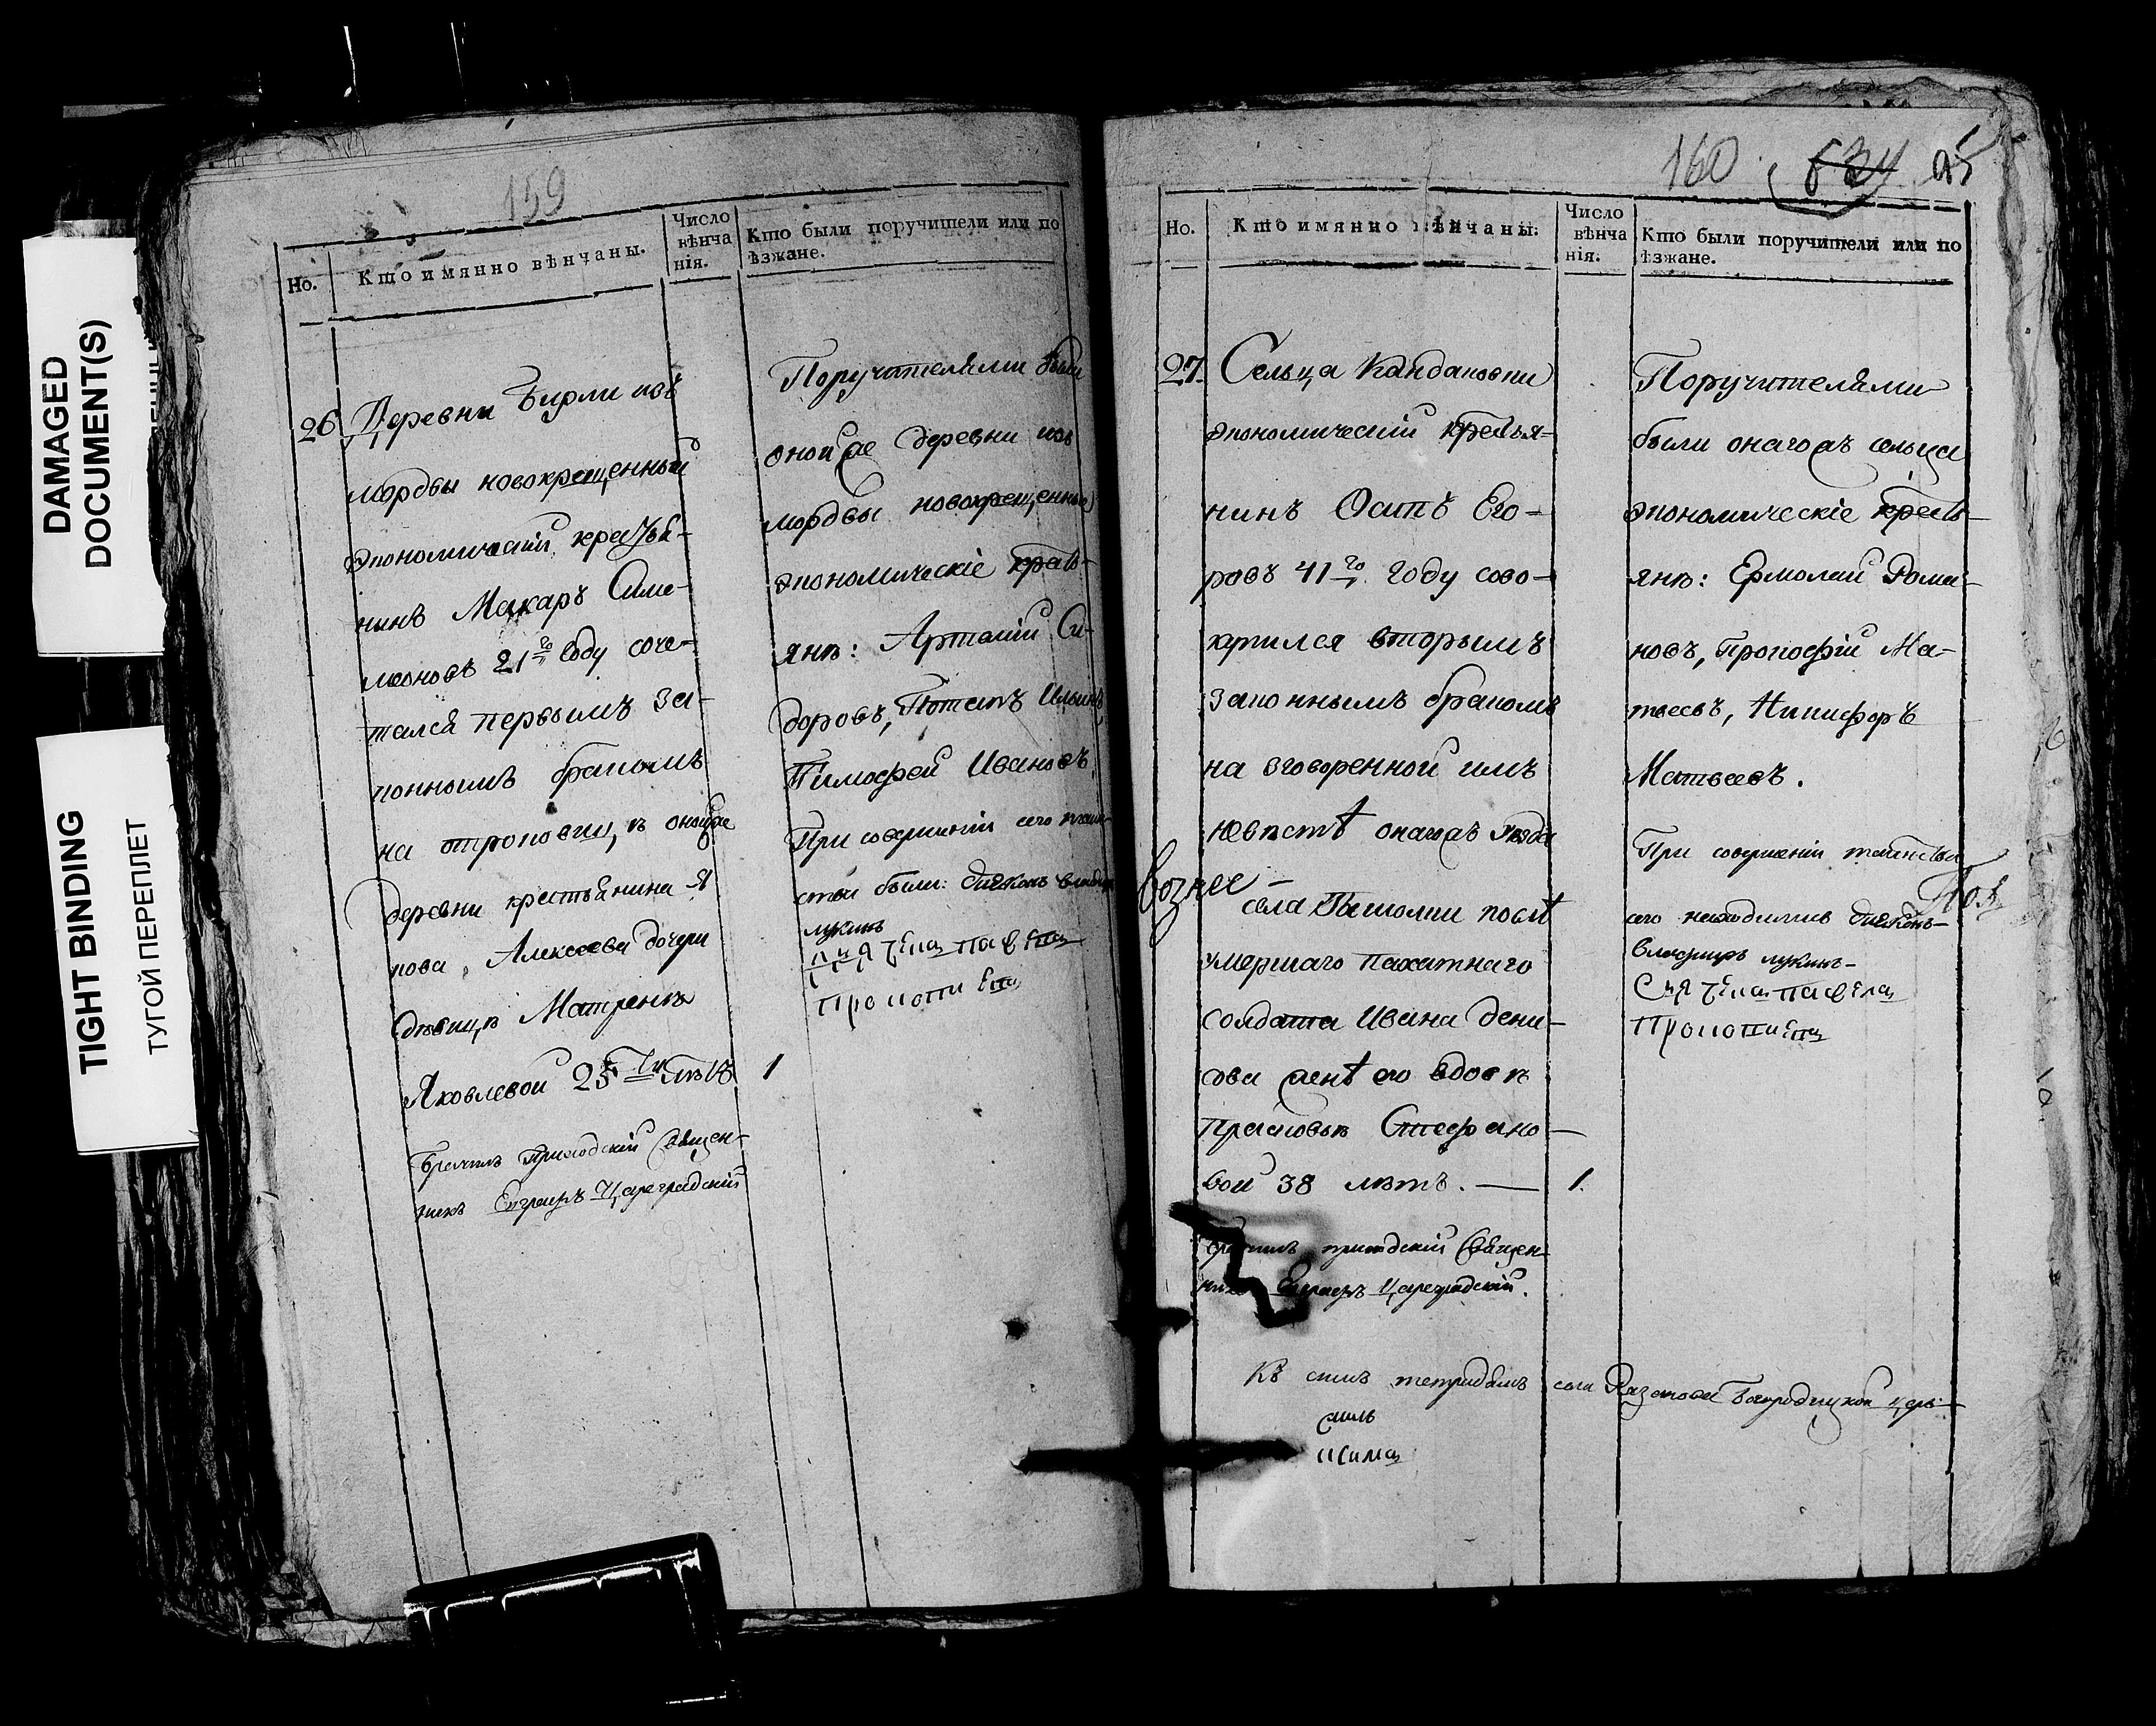 DAMAGED
DOCUMENT(S)
TIGHT BINDING
ТУГОЙ ПЕРЕПЛЕТ
159
Но.
Кто имянно вѣнчаны.
Число
вѣнча
нія.
Кто были поручители или по
ѣзжане.
26
Деревни Бирли изъ
мордвы новокрещенный
экономический крестья-
нинъ Макаръ Симе-
моновъ 21го году соче-
тался первымъ за-
коннымъ бракомъ
на отроковицѣ, оной же
деревни крестьянина Я
кова Алексеева дочери
дѣвицѣ Матренѣ
Яковлевой 25ти лѣтъ
1
Брачилъ Приходскій Священ-
никъ Евграфъ Цареградскій
Поручителями были
оной же деревни изъ
мордвы новокрещенные
экономическіе кресть-
янѣ: Артамій Си-
доровъ, Потапъ Ильинъ,
Тимофей Ивановъ.
При совершеніи сего таин-
ства были: диаконъ
лукинъ
Прокопи
160
634
25
Но.
Кто имянно вѣнчаны:
Число
вѣнча
нія.
Кто были поручители или по
ѣзжане.
27.
Сельца Кандаковки
экономический крестья-
нинъ Осипъ Его-
ровъ 41го году сово-
купился вторымъ
законнымъ бракомъ
на зговоренной имъ
невѣстѣ онагожъ уѣзда
села послѣ
умершаго пахатнаго
солдата Ивана Дени-
сова женѣ его вдовѣ
Прасковьѣ Стефано-
вой 38 лѣтъ. —
1.
Брачилъ приходскій Священ-
никъ Евграфъ Цареградскій.
Поручителями
были онагожъ сельца
экономическіе кресть-
янѣ: Ермолай Рома-
новъ, Прокофій Ма-
твеевъ, Никифоръ
Матвеевъ.
При совершеніи таинства
сего находились диаконъ
Владимиръ лукинъ
Прокопи
Къ симъ тетрадямъ села Богородицкой церк-